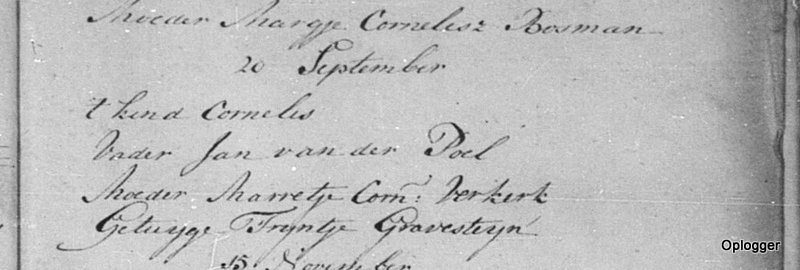 Moeder Margje Cornelisz Bosman
20 September
t kind Cornelis
Vader Jan van der Poel
Moeder Marretje Corn: Verkerk
Getuyge Tryntje Gravesteyn
15 November
Oplogger